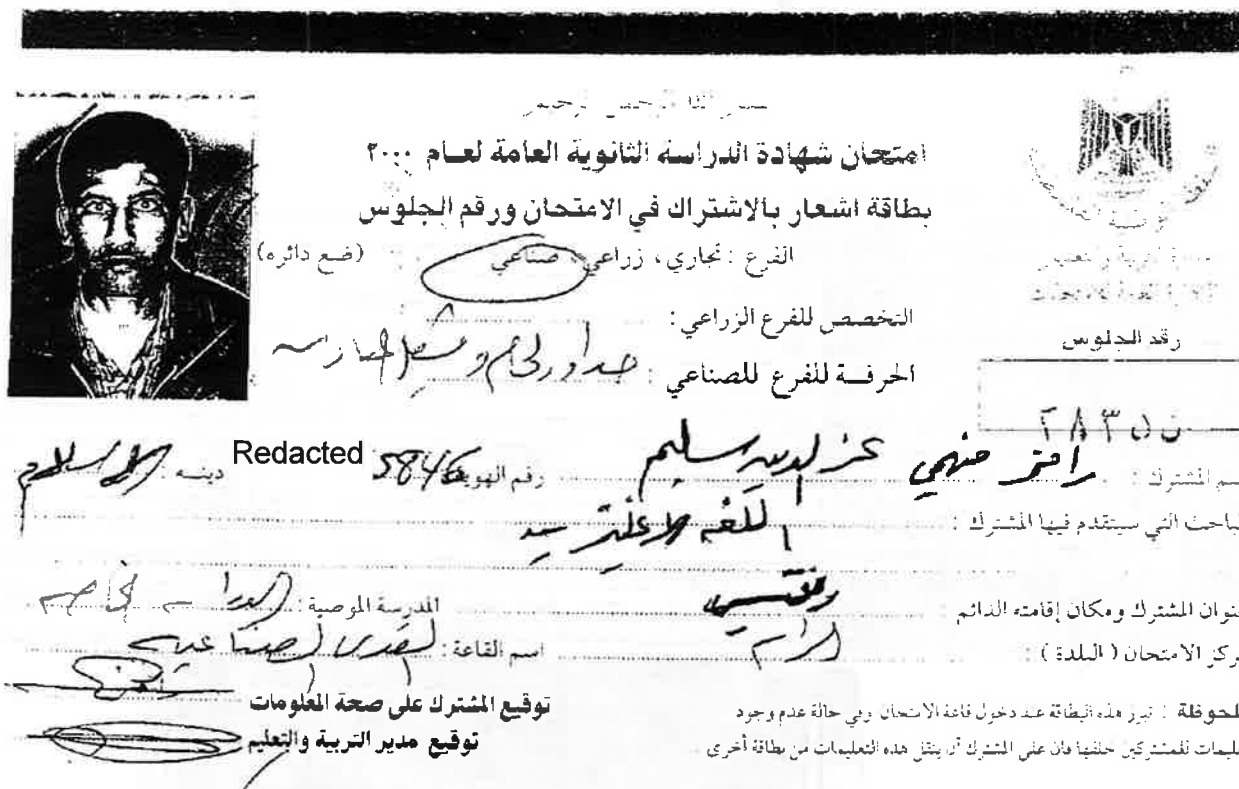 بسم الله الرحمن الرحيم
امتحان شهادة الدراسة الثانوية العامة لعام ٢٠٠٠
بطاقة اشعار بالاشتراك في الامتحان ورقم الجلوس
الفرع : تجاري ، زراعي ، صناعي (ضع دائره)
التخصص للفرع الزراعي :
الحرفة للفرع للصناعي :
رقم الجلوس
سم المشترك : عز الدين سليم رقم الهوية 5846 Redacted دينه : الاسلام
لباحث التي سيتقدم فيها المشترك : اللغه
نوان المشترك ومكان إقامته الدائم : المدرسة الموصية :
ركز الامتحان ( البلدة ) : الرام اسم القاعة : القدس الصناعيه
توقيع المشترك على صحة المعلومات
توقيع مدير التربية والتعليم
لحوظة : تبرز هذه البطاقة عند دخول قاعة الامتحان وفي حالة عدم وجود
ليمات للمشتركين خلفها فان على المشترك أن ينقل هذه التعليمات من بطاقة أخرى